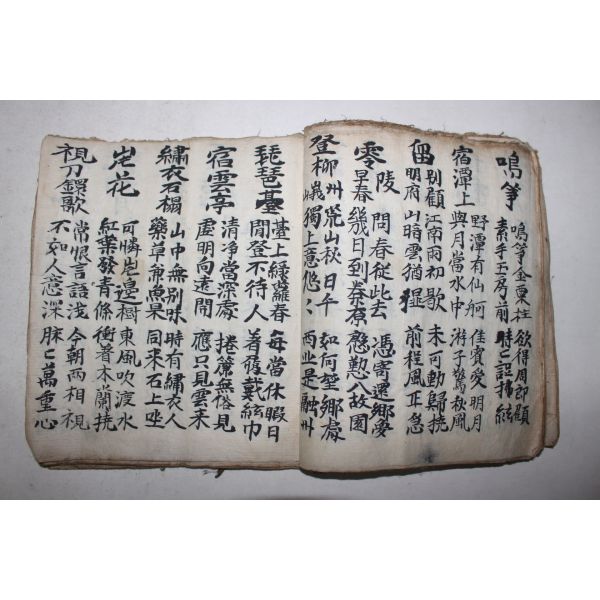 鳴箏
鳴箏金粟柱 欲得周郎顧
素手玉房前 時〻誤拂絃
宿潭上
野潭有仙舸 佳賓愛明月
與月當水中 游子驚秋風
留別顧明府
江南雨初歇 未可動歸橈
山暗雲猶濕 前程風正急
零陵早春
問春從此去 憑寄還鄉夢
幾日到秦原 慇懃入故園
登柳州峩山
荒山秋日午 如何望鄉處
獨上意悠〻 西北是融州
琵琶臺
臺上綠蘿春 每當休暇日
閒登不待人 著履戴紗巾
宿雲亭
清净當深處 捲簾無俗見
虛明向遠開 應只見雲来
繡衣石榻
山中無別味 時有繡衣人
藥草兼魚果 同来石上坐
岸花
可憐岸邊樹 東風吹渡水
紅葉發青條 衝着木蘭橈
視刀鐶歌
常恨言語浅 今朝兩相視
不如人意深 脉〻萬重心